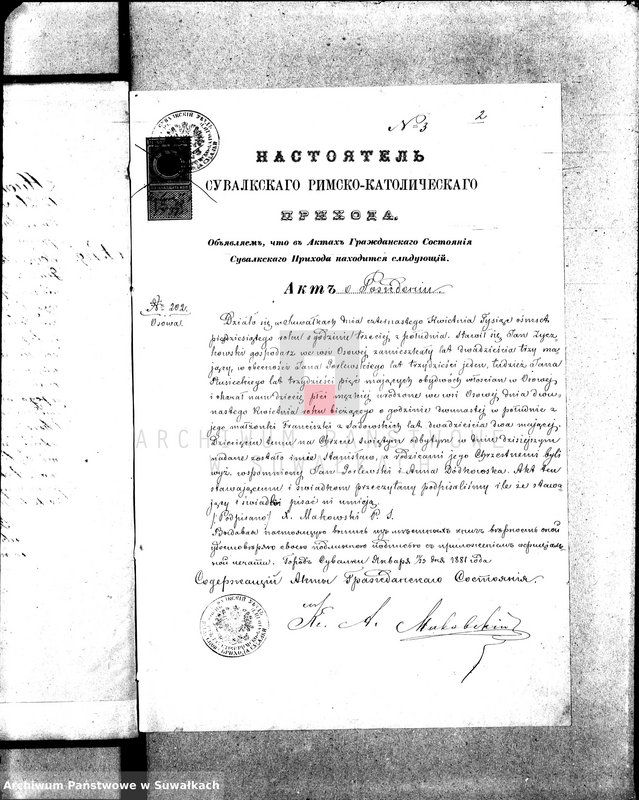 № 3
2
НАСТОЯТЕЛЬ
СУВАЛКСКАГО РИМСКО-КАТОЛИЧЕСКАГО
ПРИХОДА.
Объявляемъ, что въ Актахъ Гражданскаго Состоянія
Сувалкскаго Прихода находится слѣдующій.
Актъ о Рождении
№ 202.
Osowa.
Działo się w Suwałkach dnia czternastego Kwietnia Tysiąc ośmset
pięćdziesiątego roku o godzinie trzeciej z południa. Stawił się Jan Życz
kowski gospodarz we wsi Osowej zamieszkały lat dwadzieścia trzy ma
jący, w obecności Jana Joslewskiego lat trzydzieści jeden, tudzież Jana
lat trzydzieści pięć mających obydwóch włościan w Osowej
i okazał nam dziecię płci męzkiej urodzone we wsi Osowej dnia dwu
nastego Kwietnia roku bieżącego o godzinie dwunastej w południe z
jego małżonki Franciszki z Sadowskich lat dwadzieścia dwa mającej.
Dziecięciu temu na Chrzcie świętym odbytym w dniu dzisiejszym
nadane zostało imie Stanisław, a rodzicami jego Chrzestnemi byli
wyż. wspomniony Jan Joslewski i Anna Bodkowska. Akt ten
stawającemu i świadkom przeczytany podpisaliśmy ile że stawa
jący i świadki pisać ni umieją.
/Podpisano/ X. Makowski P. S.
Выдавая настоящую выпись изъ метрическихъ книгъ вѣрность оной
удостовѣряю своею подлинною подписью съ приложеніемъ оффиціаль
ной печати. Городъ Сувалки Января дня 1881 года
Содержащій Акты Гражданскаго Состоянія.
Кс. А. Маковскій
ARCHIWUM PAŃSTWOWE
Archiwum Państwowe w Suwałkach